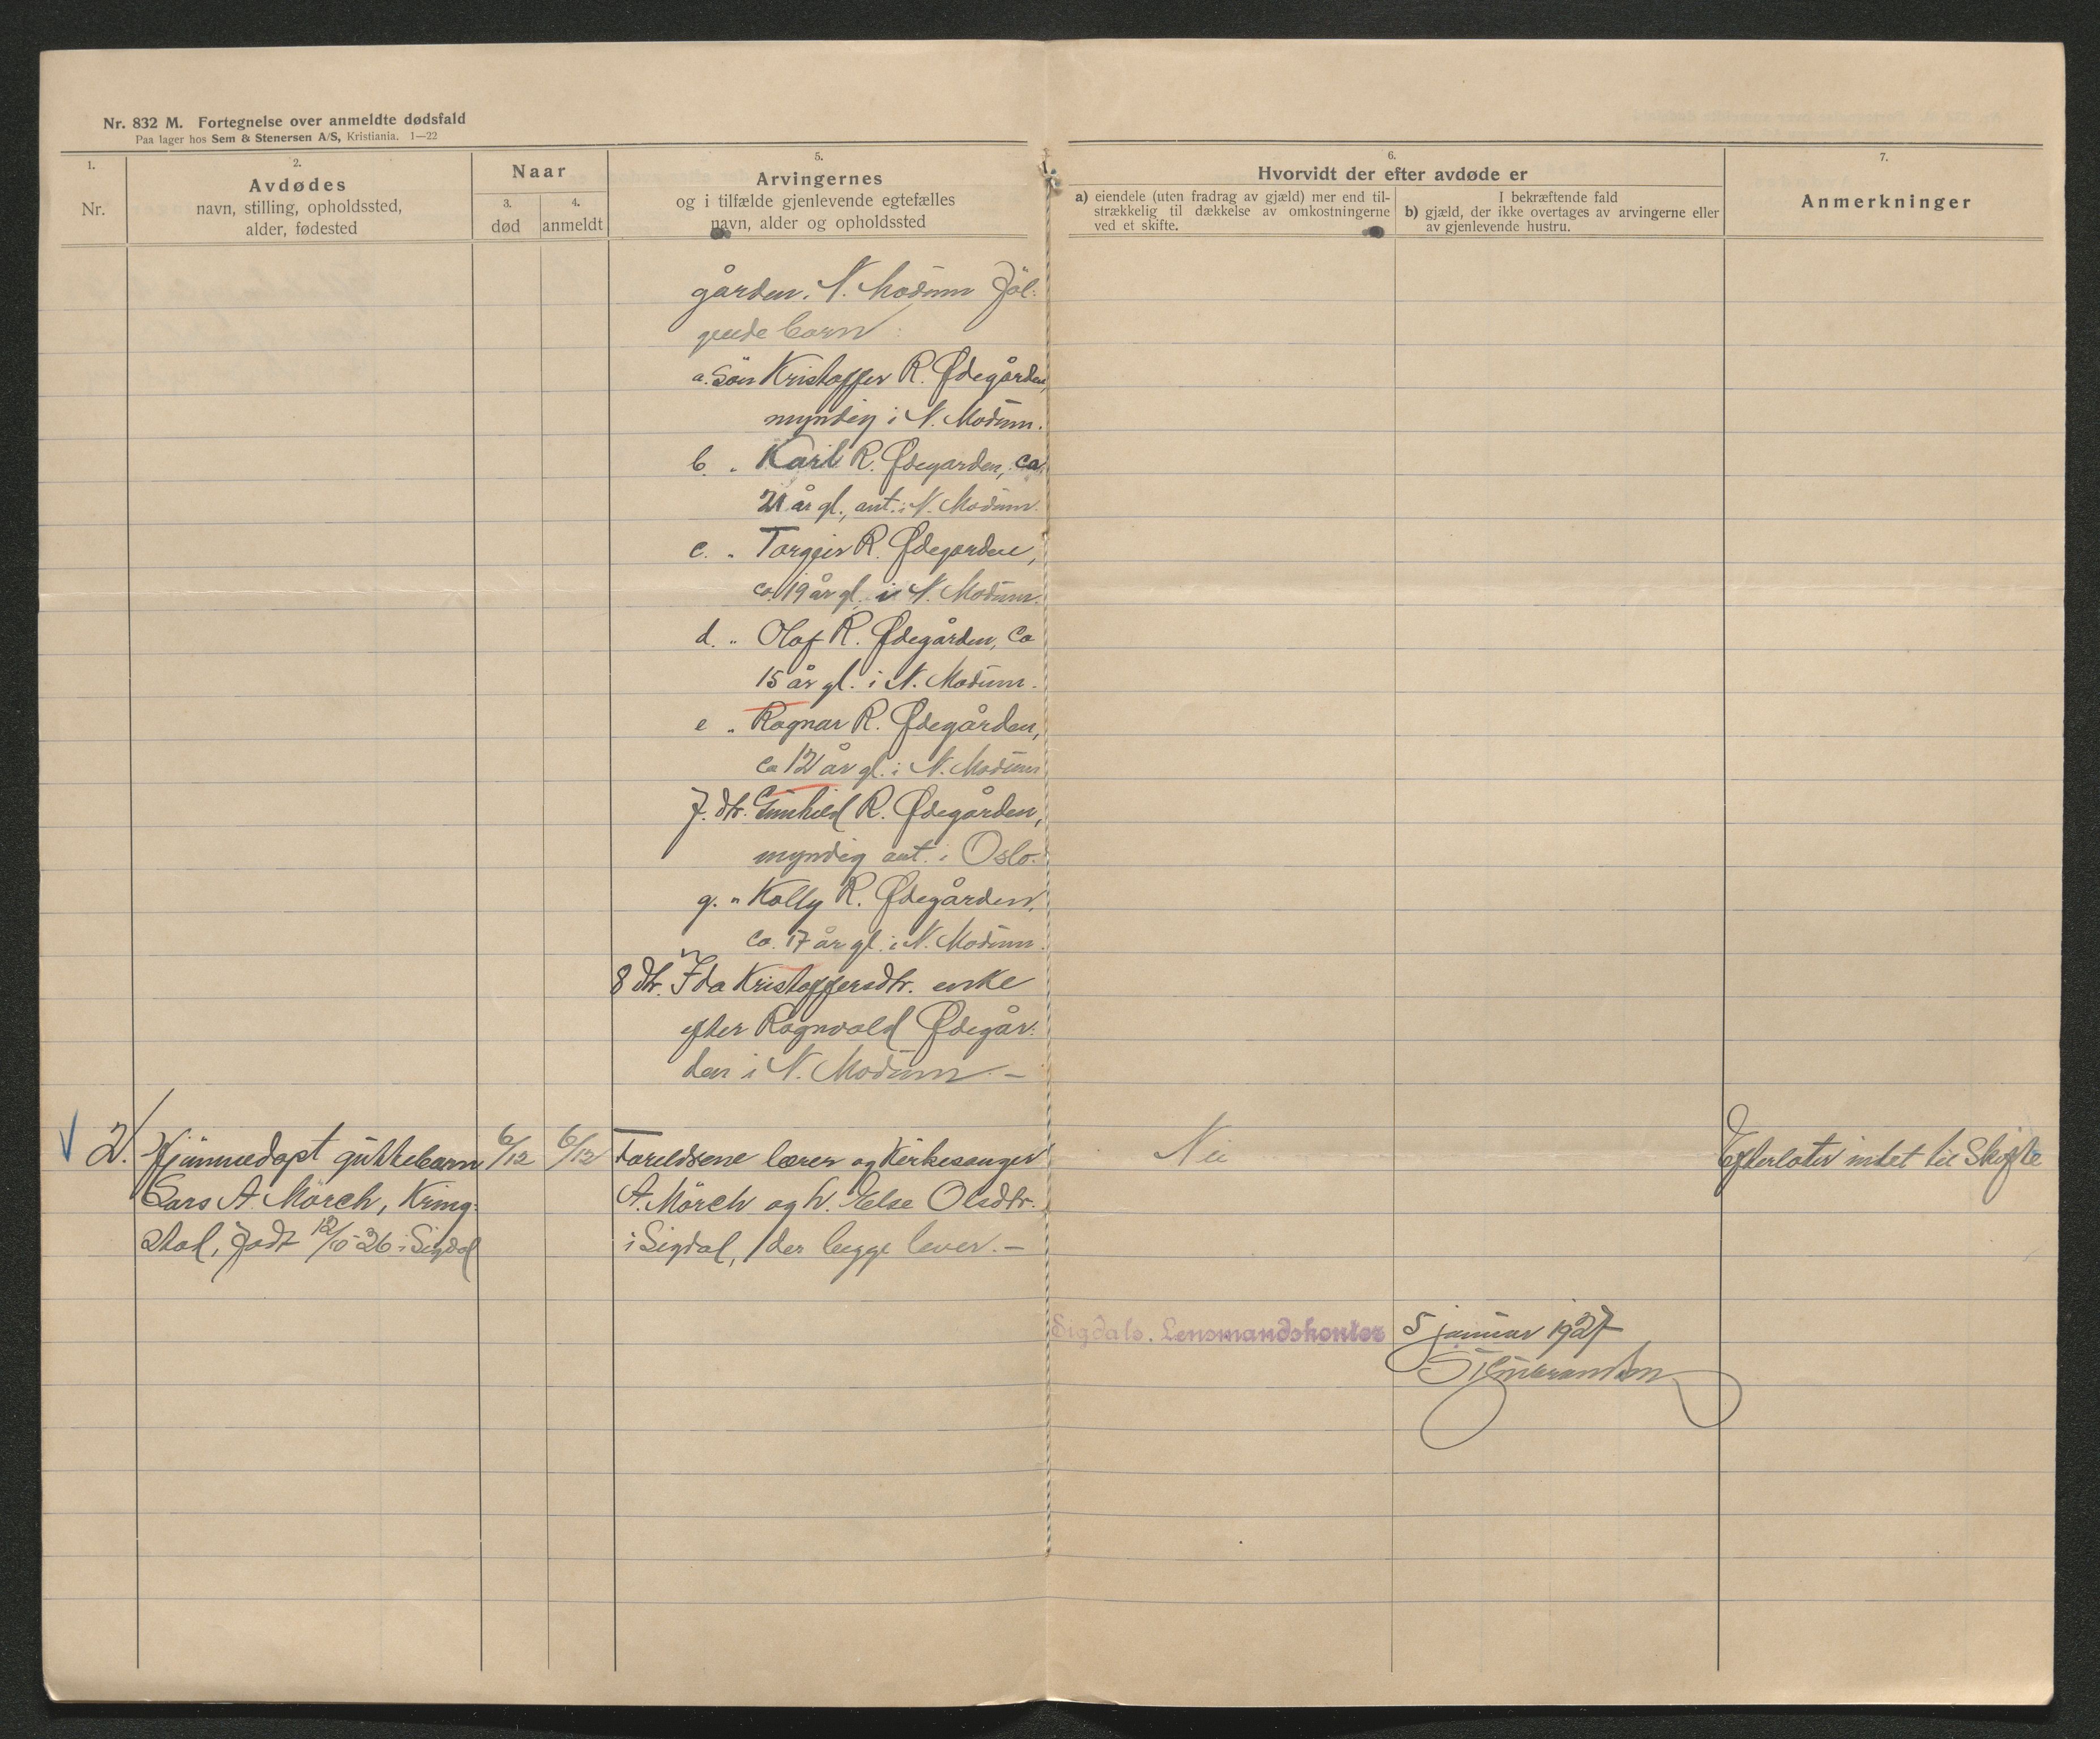 Nr. 832 M. Fortegnelse over anmeldte dødsfald
Paa lager hos Sem & Stenersen A/S, Kristiania. 1—22
1.
Nr.
2.
Avdødes
navn, stilling, opholdssted,
alder, fødested
Naar
3.
død
4.
anmeldt
5.
Arvingernes
og i tilfælde gjenlevende egtefælles
navn, alder og opholdssted
6.
Hvorvidt der efter avdøde er
a) eiendele (uten fradrag av gjæld) mer end til-
strækkelig til dækkelse av omkostningerne
ved et skifte.
I bekræftende fald
b) gjæld, der ikke overtages av arvingerne eller
av gjenlevende hustru.
7.
Anmerkninger
gården. N. Modum föl-
gende barn:
a. Sön Kristoffer R. Ødegården,
myndig i N. Modum.
b. „ Karl R. Ødegarden, ca.
21 år gl., ant. i N. Modum.
c. „ Torgeir R. Ødegarden,
ca. 19 år gl. i N. Modum.
d. „ Olaf R. Ødegården, ca
15 år gl. i N. Modum.
e „ Ragnar R. Ødegården,
ca 12 år gl. i N. Modum
f. dtr. Gunhild R. Ødegården,
myndig ant. i Oslo.
g. „ Kolly R. Ødegården,
ca. 17 år gl. i N. Modum.
8 dtr. Ida Kristoffersdtr. enke
efter Ragnvald Ødegår-
den i N. Modum. –
2. Hjemmedøpt guttebarn 6/12 6/12 Foreldrene lærer og Kirkesanger Nei Efterlater intet til Skifte
Lars A. Mörch, Kring- A. Mörch og h. Else Olsdtr.
stad, født 12/10-26 i Sigdal i Sigdal, der begge lever. –
Sigdals. Lensmandskontor 5 januar 1927